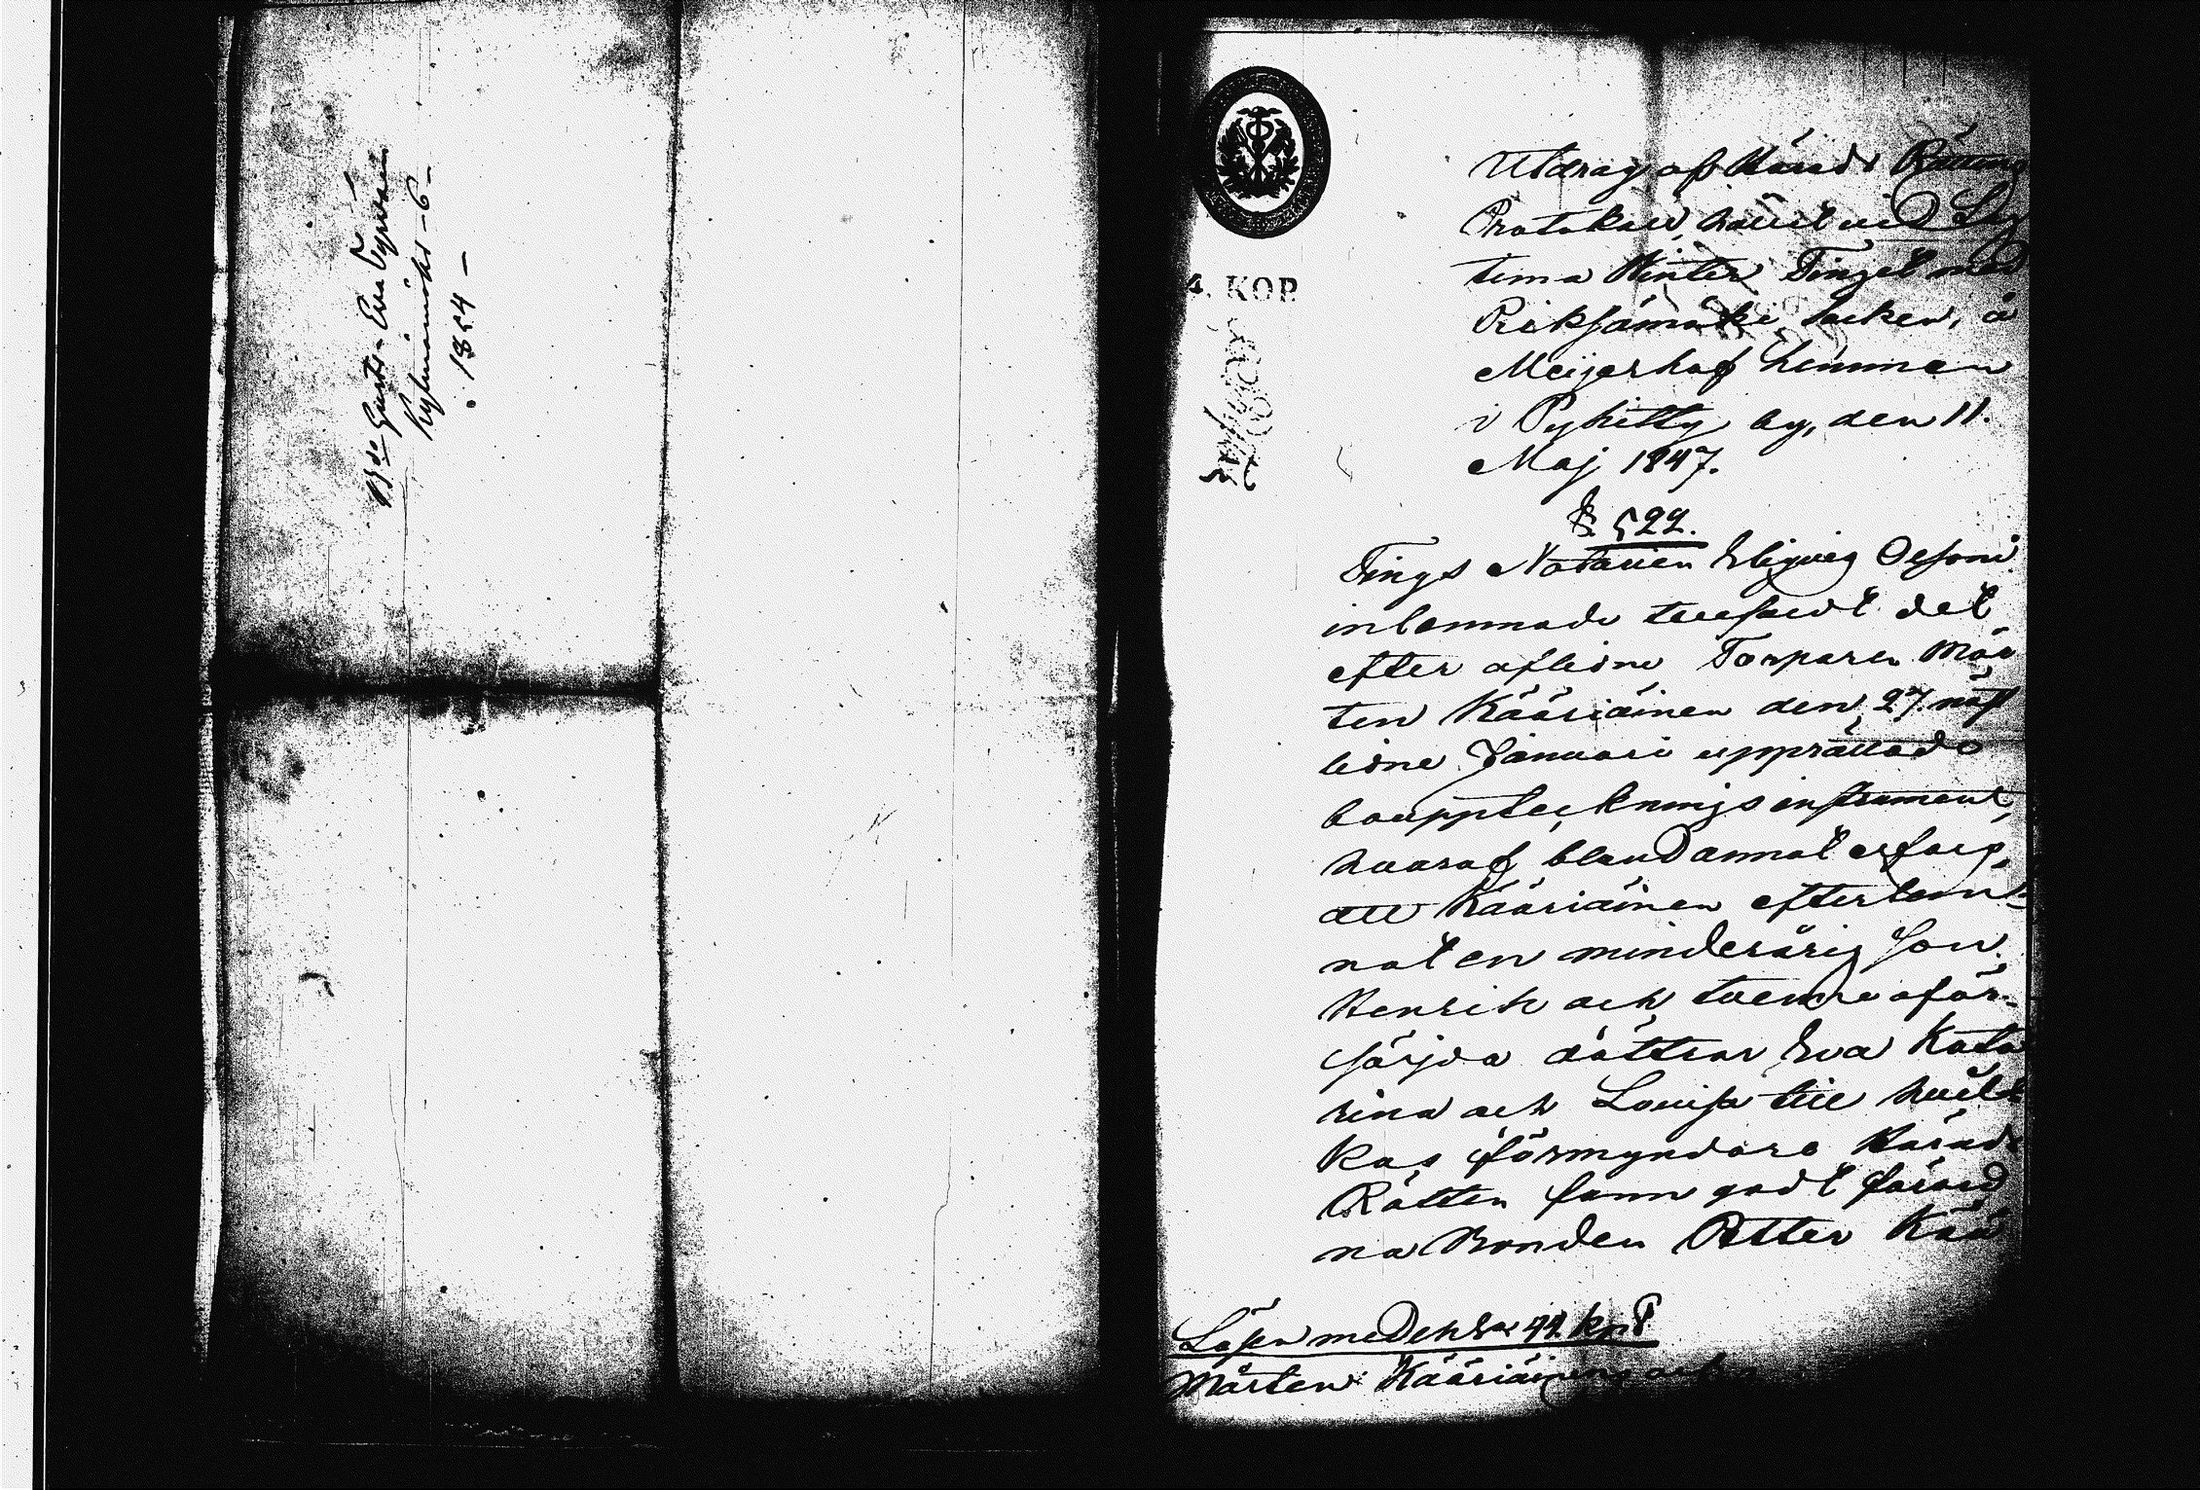 Bde Gusts. Eva Pyyväin
Kylmämäki - 6 -
. 1854 -
4. KOP
Utdrag af Härads Rättens
Protokoll, hållit vid Lag
tima Winter Tinget med
Pieksämäki socken, å
Meijerhof hemman
i Pyhitty by, den 11.
Maj 1847.
§ 522.
Tings Notarien
inlemnade teesledt det
efter aflidne Torparen Mår
ten Kääriäinen den 27. näst
lidne Januari upprättade
boupptecknings instrument,
hvaraf bland annat erfors,
att Kääriäinen efterlem
nat en minderårig son
Henrik och tvenne oför-
sörjda döttrar Eva Kata
rina och Lovisa till hvil
kas förmyndare Härads
Rätten fann godt förord
na Bonden Petter Kää
Lösen med 44 kop S
Mårten Kääriäinens